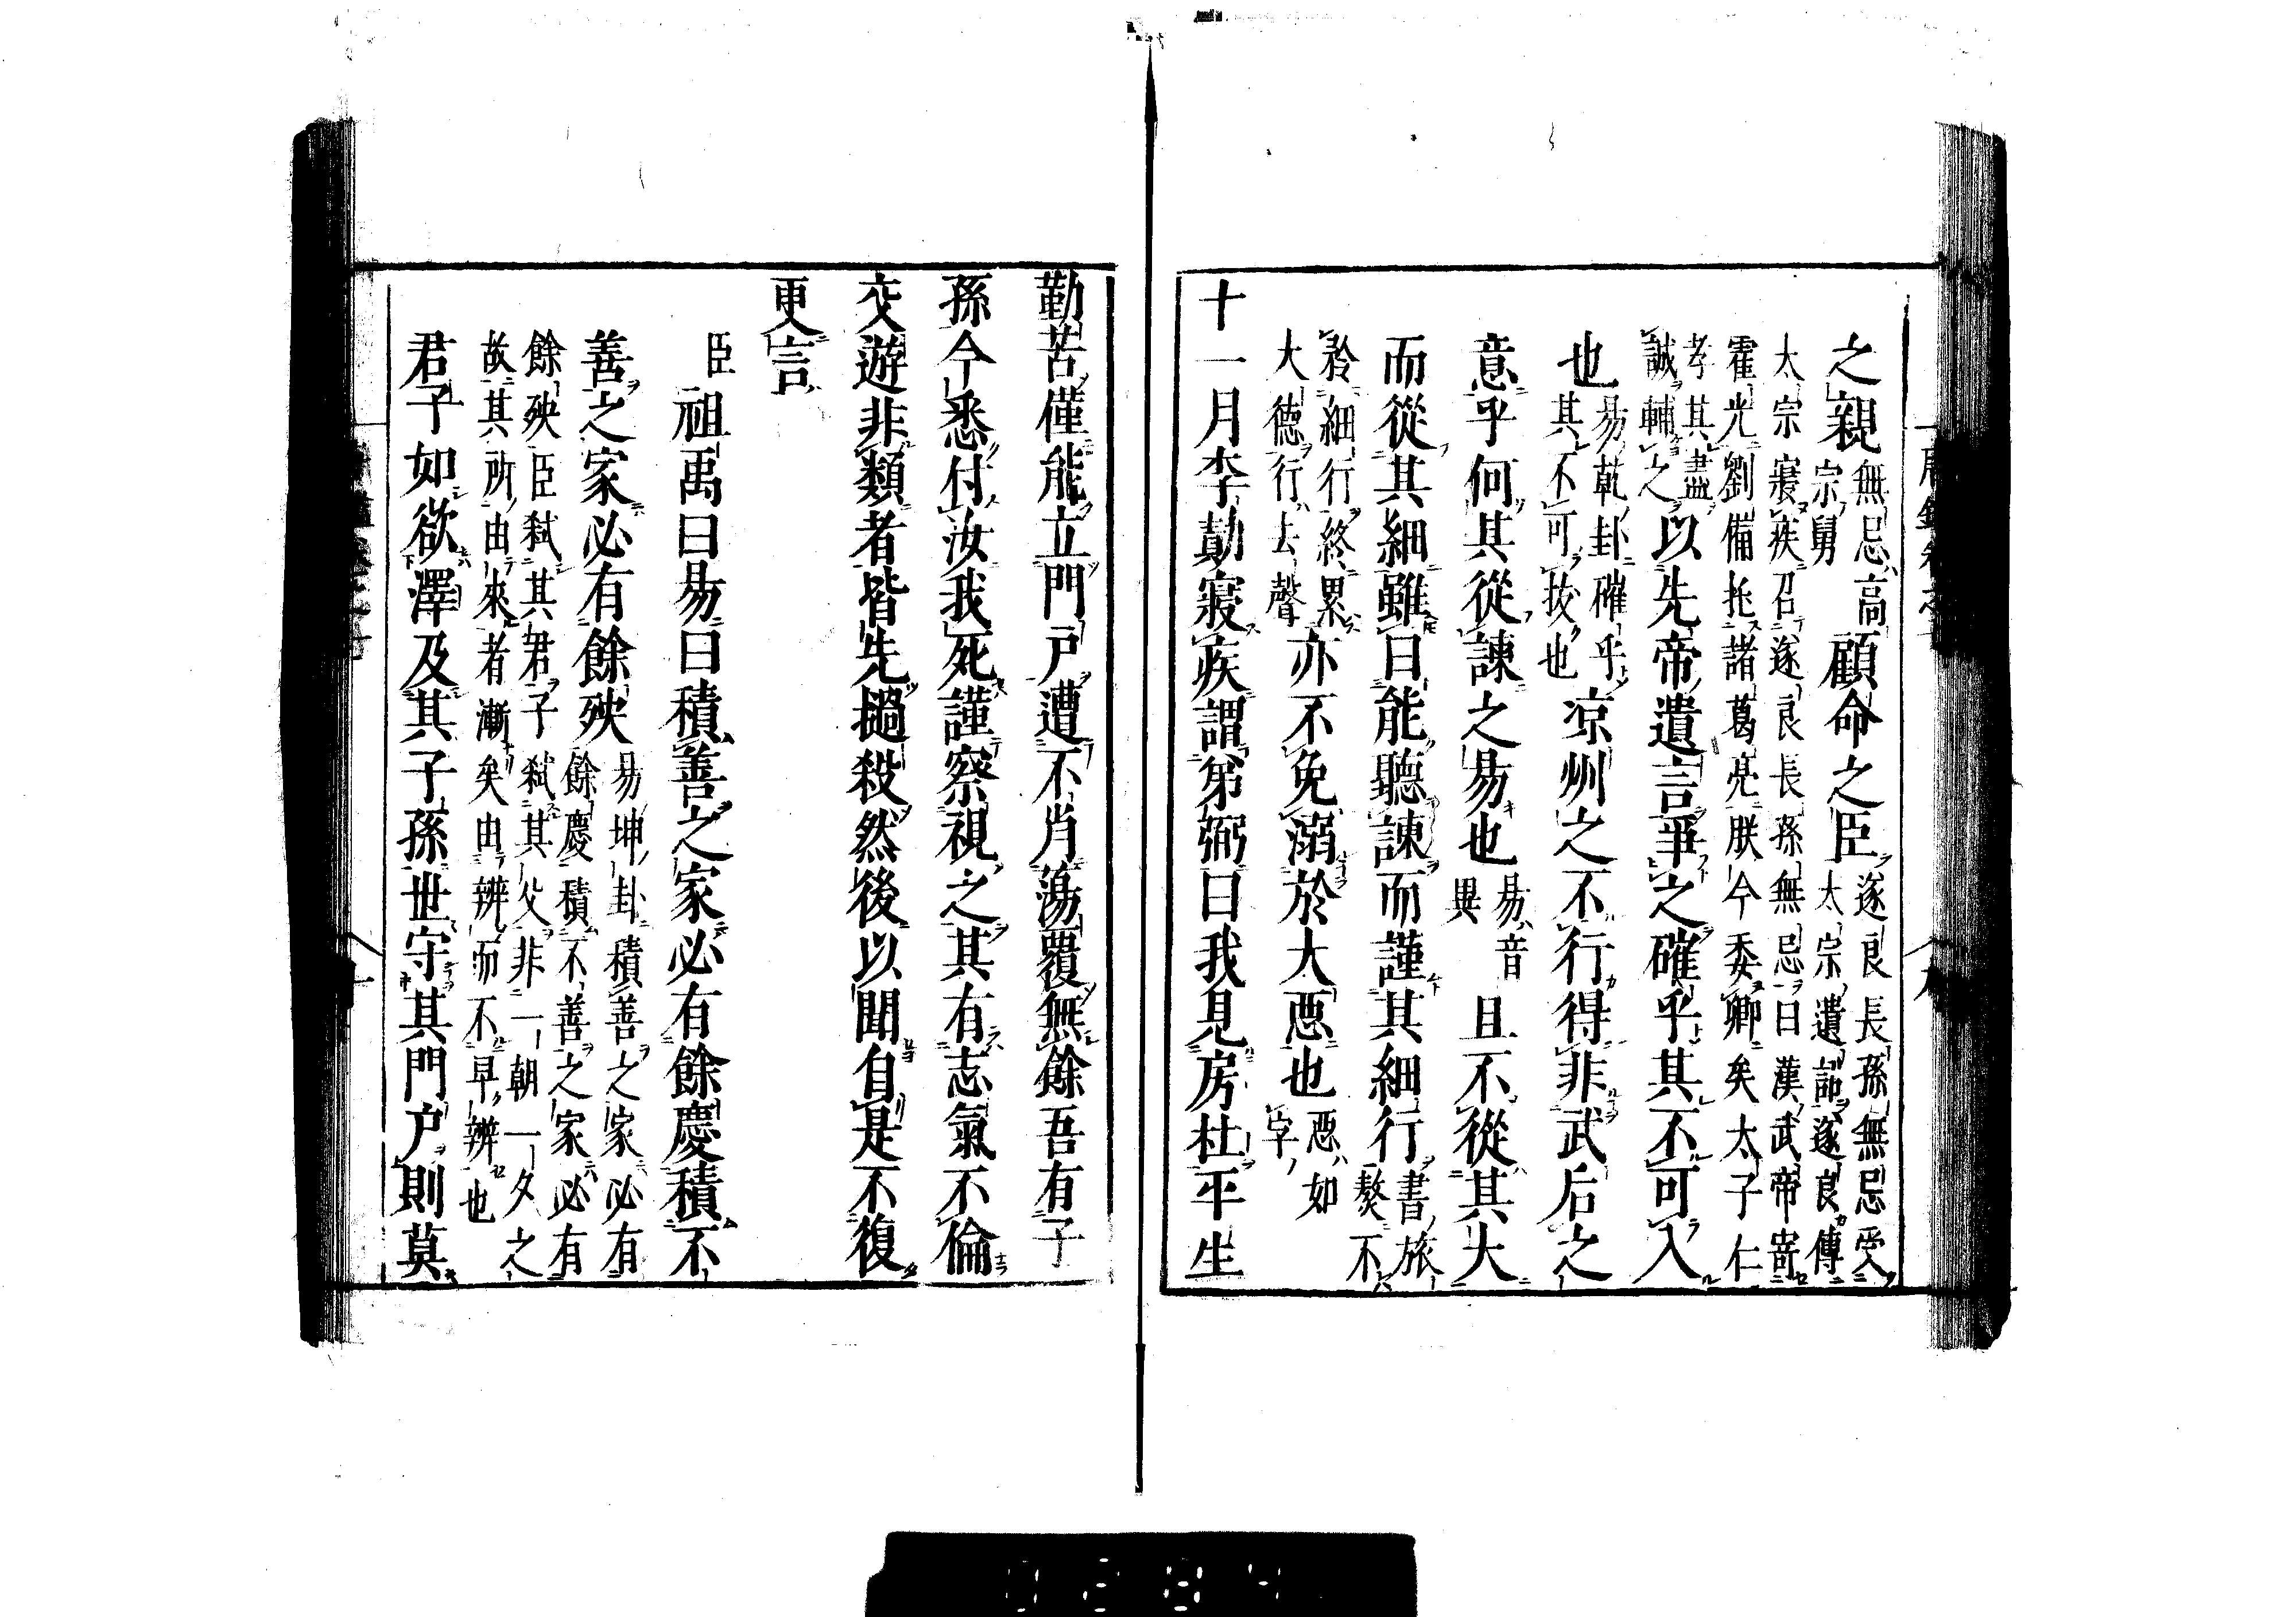 之親無忌高宗舅顧命之臣遂良長孫無忌受太宗遺詔遂良傳
太宗寢疾召遂良長孫無忌曰漢武帝寄霍光劉備托諸葛亮朕今委卿矣太子仁
孝其盡誠輔之以先帝遺言爭之確乎其不可入
也易乾卦確乎其不可拔也凉州之不行得非武后之
意乎何其從諫之易也易音異且不從其大
而從其細雖曰能聽諫而謹其細行書旅獒不
矜細行終累大德行去聲亦不免溺於大惡也惡如字
十一月李勣寢疾謂弟弼曰我見房杜平生
勤苦僅能立門戶遭不肖蕩覆無餘吾有子
孫今悉付汝我死謹察視之其有志氣不倫
交遊非類者皆先撾殺然後以聞自是不復
更言
臣祖禹曰易曰積善之家必有餘慶積不
善之家必有餘殃易坤卦積善之家必有餘慶積不善之家必有
餘殃臣弒其君子弒其父非一朝一夕之故其所由來者漸矣由辨而不早辨也
君子如欲澤及其子孫世守其門戶則莫